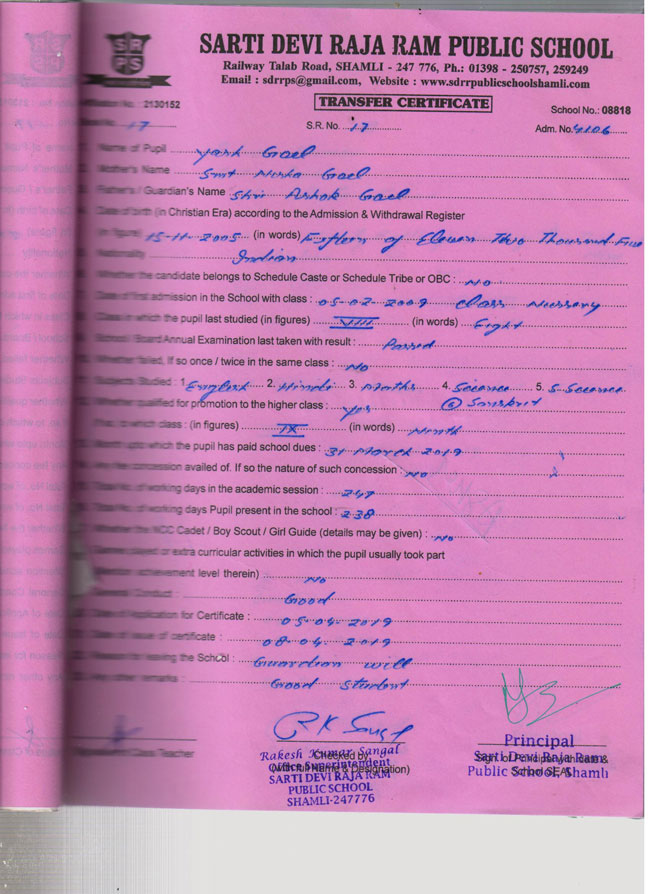 SRPS
SARTI DEVI RAJA RAM PUBLIC SCHOOL
Railway Talab Road, SHAMLI - 247 776, Ph.: 01398 - 250757, 259249
Email : sdrrps@gmail.com, Website : www.sdrrpublicschoolshamli.com
TRANSFER CERTIFICATE
School No.: 08818
No. 2130152
17 S.R. No. 17 Adm. No. 4106
Name of Pupil Yash Goel
Mother's Name Smt Nisha Goel
Father's / Guardian's Name Shri Ashok Goel
Date of birth (in Christian Era) according to the Admission & Withdrawal Register
(in figure) 15-11-2005 (in words) Fifteen of Eleven Two Thousand Five
Nationality Indian
Whether the candidate belongs to Schedule Caste or Schedule Tribe or OBC : NO
Date of first admission in the School with class : 05-02-2009 Class Nursery
Class in which the pupil last studied (in figures) VIII (in words) Eight
School / Board Annual Examination last taken with result : Passed
Whether failed. If so once / twice in the same class : No
Subjects Studied : 1. English 2. Hindi 3. Maths 4. Science 5. S. Science
6 Sanskrit
Whether qualified for promotion to the higher class : Yes
to which class : (in figures) IX (in words) Ninth
Month upto which the pupil has paid school dues : 31 March 2019
concession availed of. If so the nature of such concession No
Total No. of working days in the academic session : 247
Total No. of working days Pupil present in the school : 238
Whether the NCC Cadet / Boy Scout / Girl Guide (details may be given) : No
Games played or extra curricular activities in which the pupil usually took part
(Mention achievement level therein) No
General Conduct : Good
Date of Application for Certificate : 05-04-2019
Date of issue of certificate : 08-04-2019
Reason for leaving the School : Guardian will
Any other remarks : Good Student
RK Sangal
Class Teacher
Checked by
(with full Name & Designation)
Rakesh Kumar Sangal
Office Superintendent
SARTI DEVI RAJA RAM
PUBLIC SCHOOL
SHAMLI-247776
Principal
Sarti Devi Raja Ram
Public School, Shamli